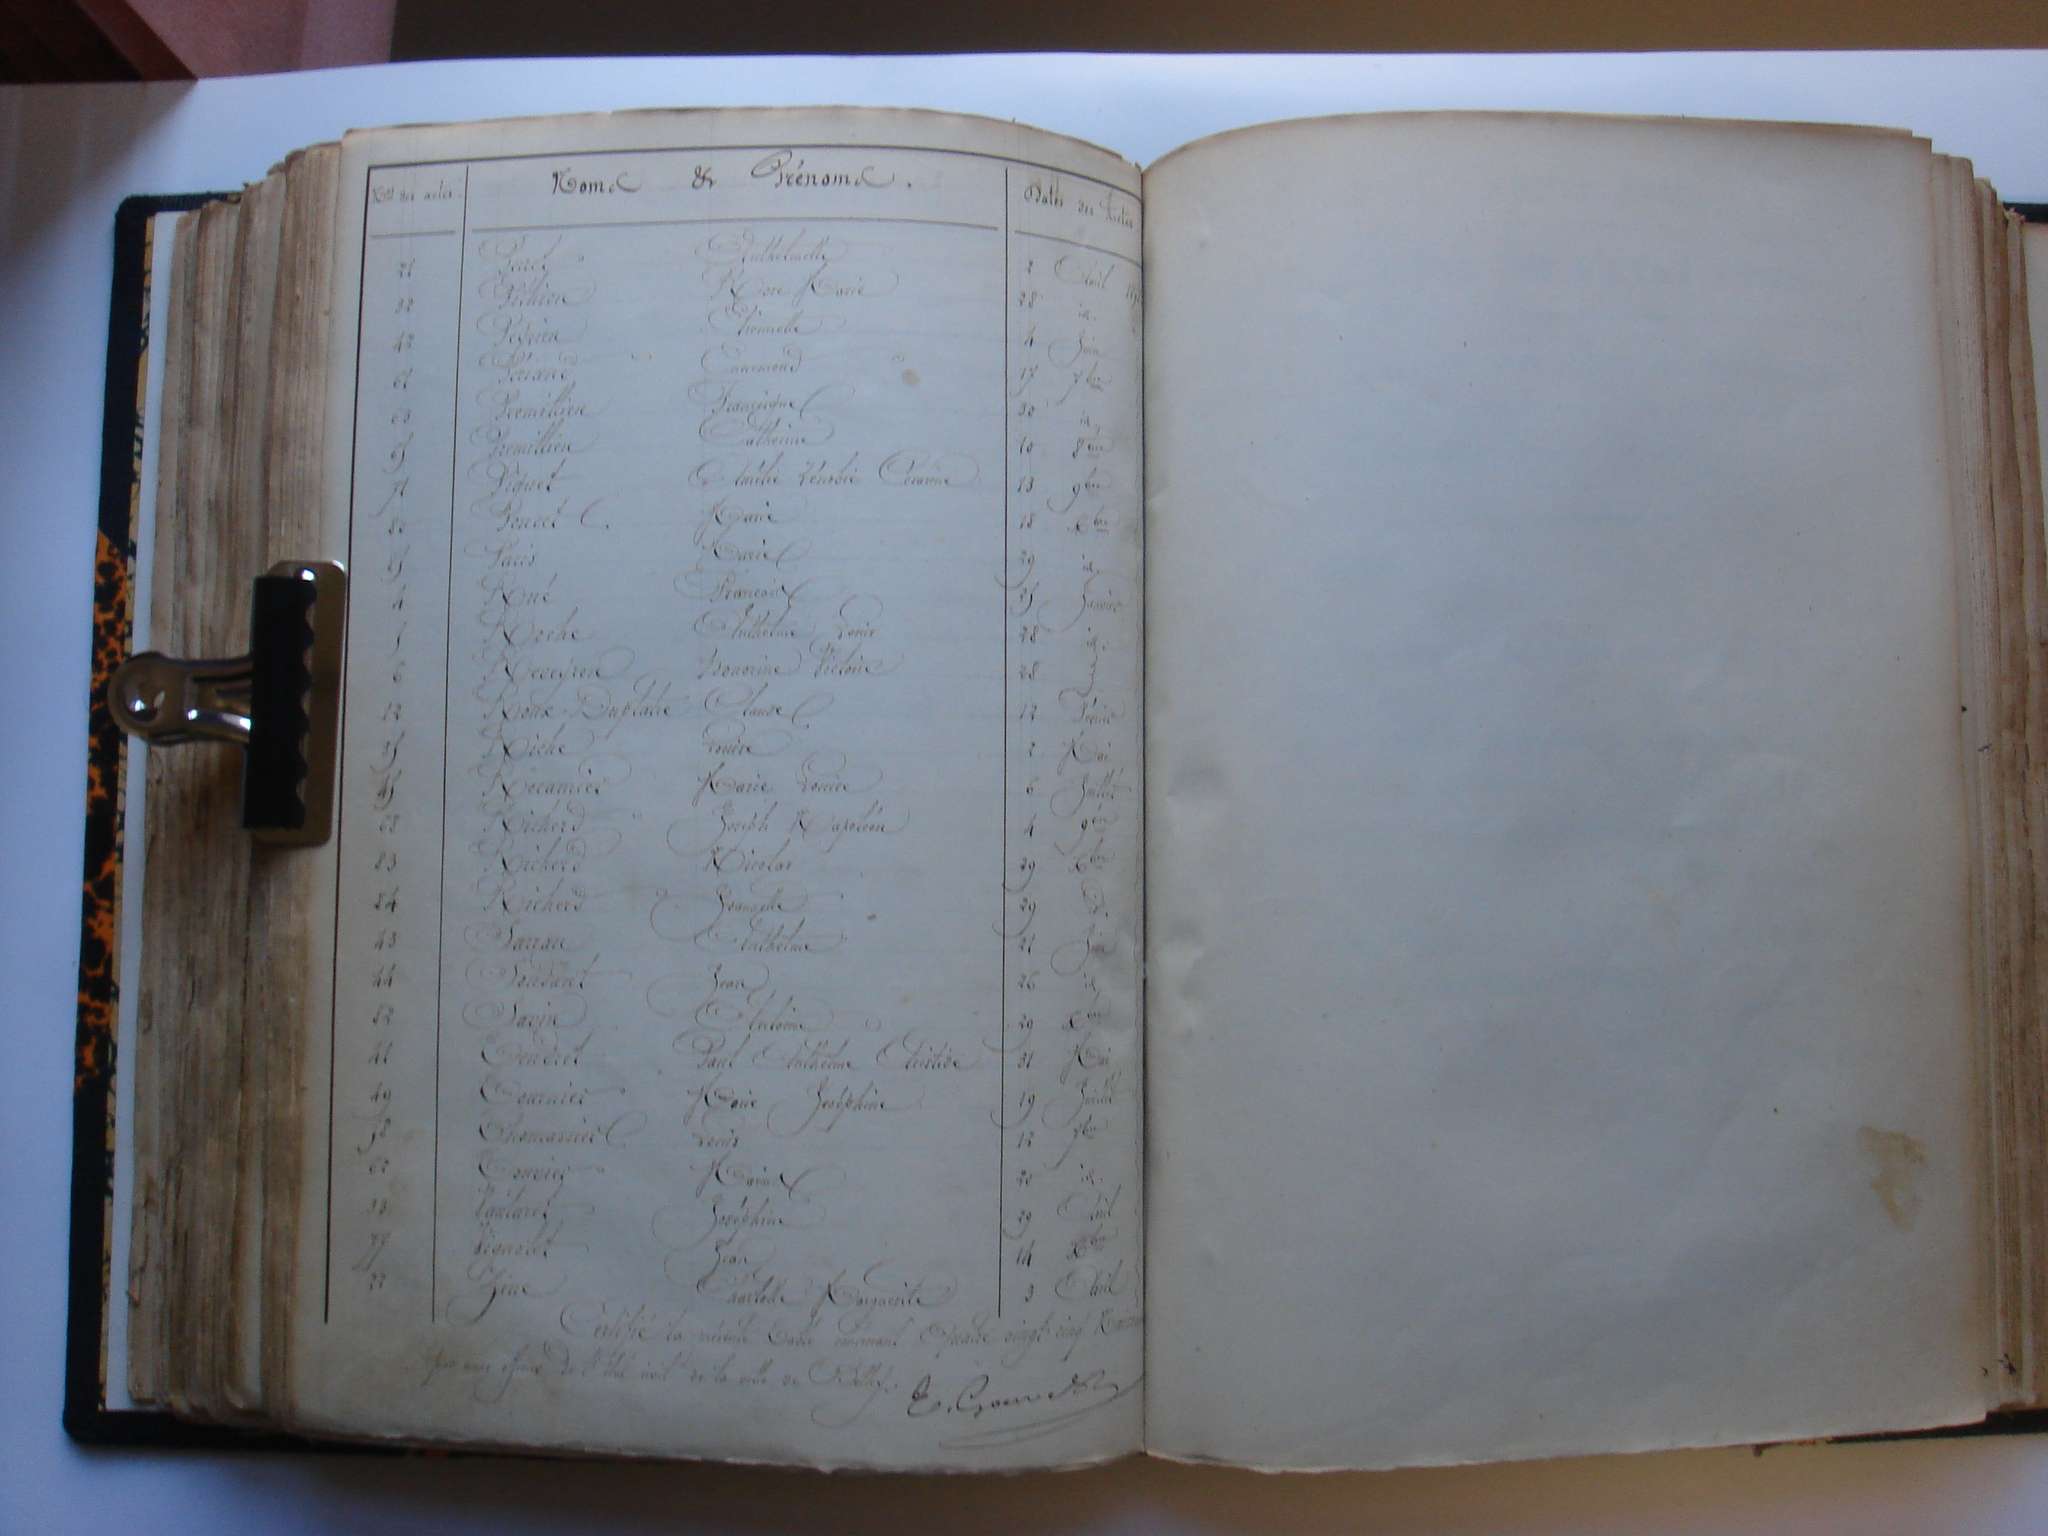 Nos des actes. Noms & Prénoms. Dates des Actes
21 Anthelmette 2 Avril
32 Rose Marie 28 id.
42 Péquien 4 Juin
61 17 7bre
63 Premillieu Françoise 30 id.
65 Premillieu Catherine 10 8bre
71 Piquet Amélie Zénobie 13 9bre
80 Poncet Marie 18 Xbre
85 Paris Marie 29 id.
4 Rué François 25 Janvier
5 Roche Anthelme Louis 28 id.
6 Reveyron Honorine Victoire 28
12 Roux Claude 12 Février
35 Riche Louise 2 Mai
45 Récamier Marie Louise 6 Juillet
68 Richerd Joseph Napoléon 4 9bre
83 Richerd Nicolas 29 Xbre
84 Richerd 29 id.
43 Sarran Anthelme 21 Juin
44 Jean 26 id.
82 Savin Antoine 29 Xbre
41 Tendret Paul Anthelme Aristide 31 Mai
49 Tournier Marie Joséphine 19 Juillet
58 Thomasset Louis 12 7bre
62 Marie 20 id.
33 Joséphine 29 Avril
77 Jean 14 Xbre
22 Charlotte Marguerite 3 Avril
Certifié la présente table contenant Quatre vingt cinq
Par nous officier de l'état civil de la ville de Belley.